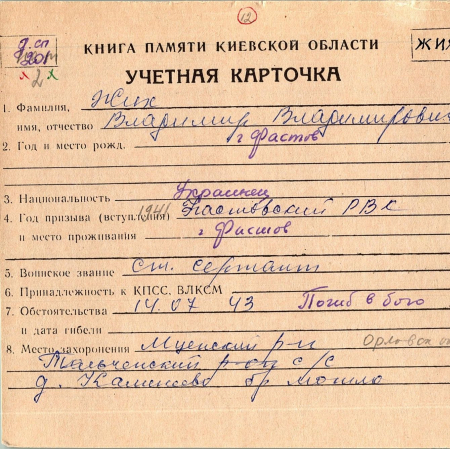 12
д.сп
2
КНИГА ПАМЯТИ КИЕВСКОЙ ОБЛАСТИ
ЖИ
УЧЕТНАЯ КАРТОЧКА
1. Фамилия, Жих
имя, отчество Владимир Владимирович
2. Год и место рожд. г Фастов
3. Национальность Украинец
4. Год призыва (вступления) 1941 Фастовский РВК
и место проживания г Фастов
5. Воинское звание ст. сержант
6. Принадлежность к КПСС, ВЛКСМ
7. Обстоятельства 14.07 43 Погиб в бою
и дата гибели
8. Место захоронения Мценский р-н Орловск
р-он с/с
д. Каменево бр могила